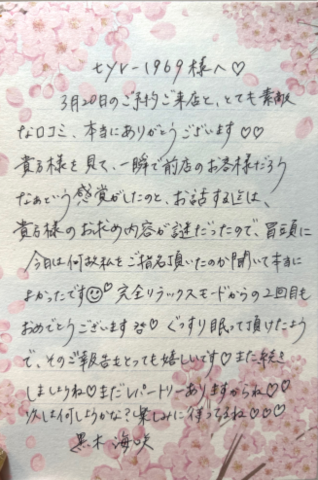 tyr-1969様へ♡
3月20日のご予約ご来店と、とても素敵
な口コミ、本当にありがとうございます♡♡
貴方様を見て、一瞬で前店のお客様だろう
なぁという感覚がしたのと、お話する迄は、
貴方様のお求め内容が謎だったので、冒頭に
今日は何故私をご指名頂いたのか聞いて本当に
よかったです☺♡ 完全リラックスモードからの2回目も
おめでとうございます♡ ぐっすり眠って頂けたよう
で、そのご報告もとっても嬉しいです♡また続き
しましょうね♡まだレパートリーありますからね♡♡
次は何しようかな?楽しみに待ってるね♡♡♡
黒木 海咲